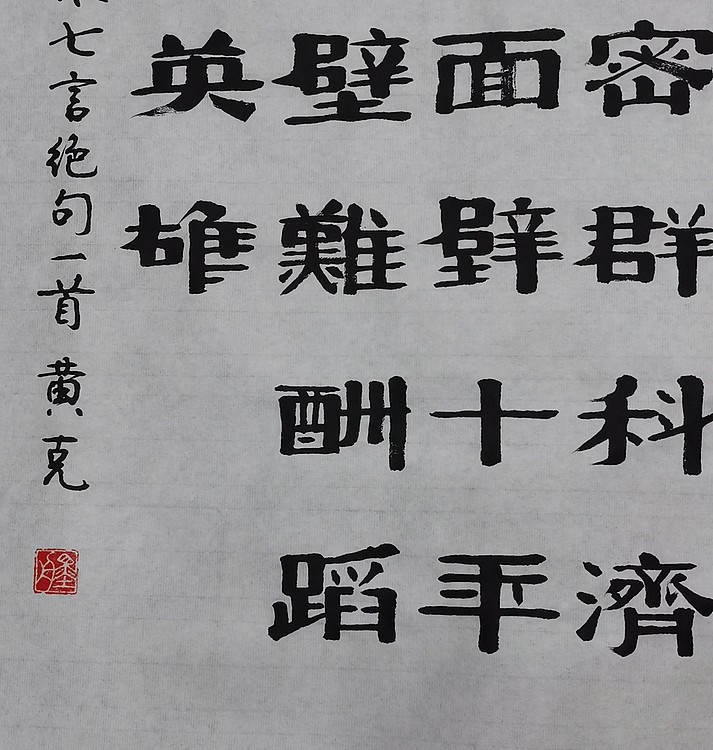 密群科濟
面壁十年
壁難酬蹈
英雄
七言絶句一首 黄克